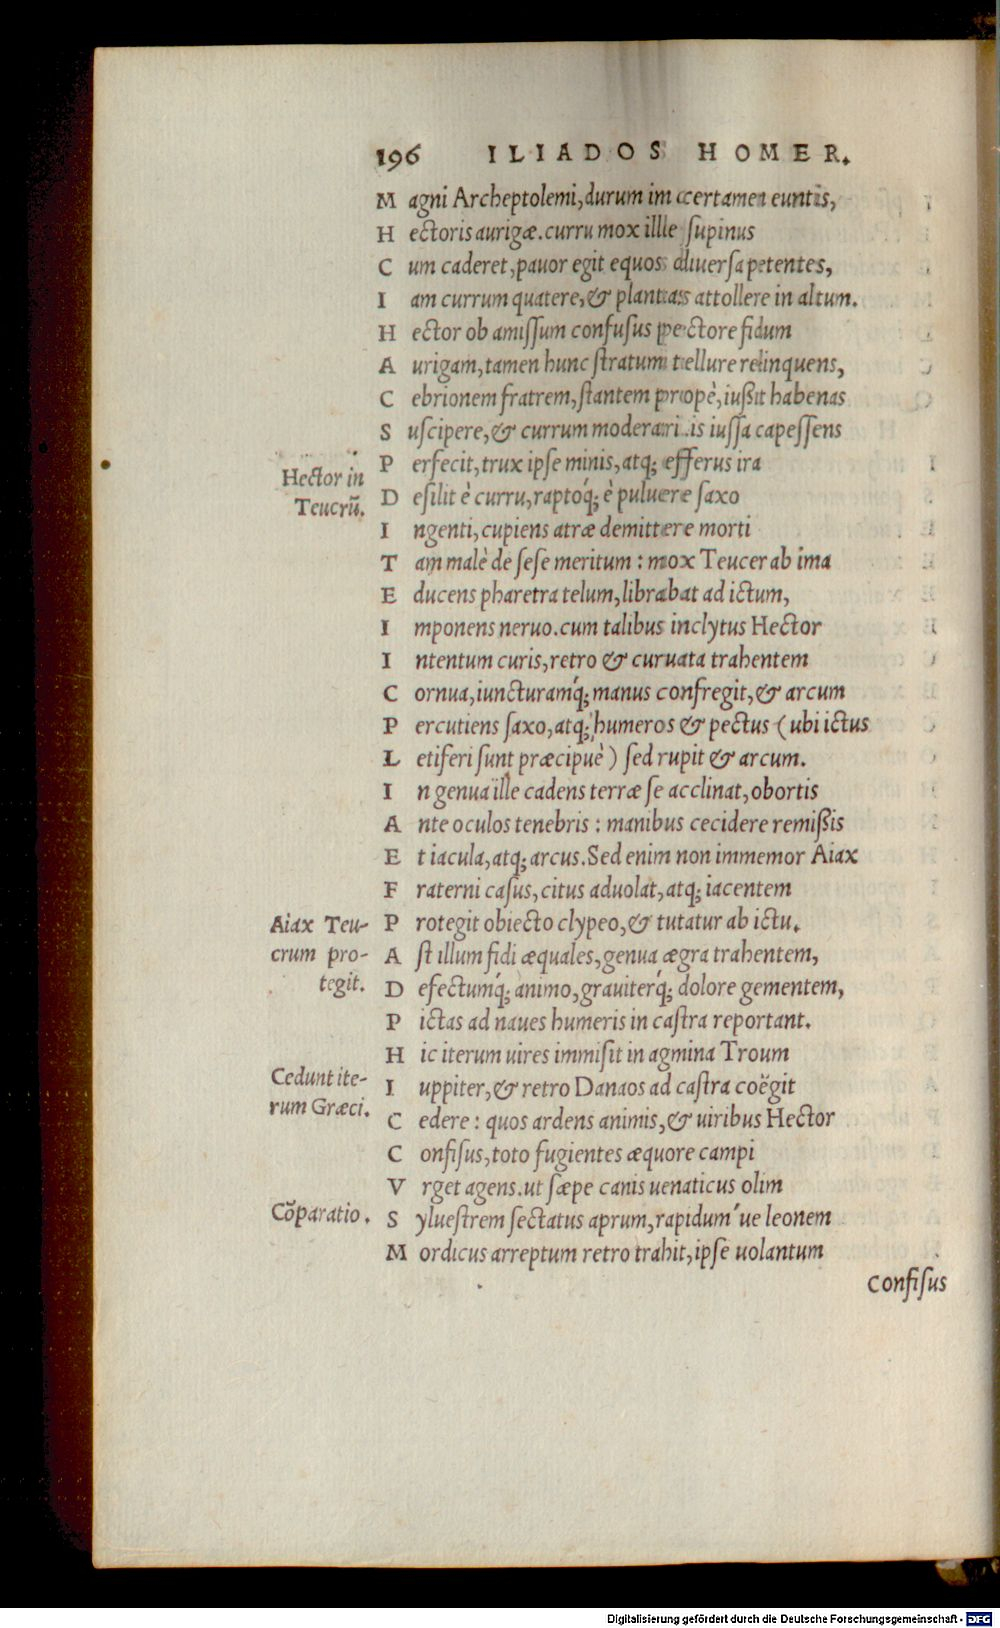 196 ILIADOS HOMER.
Magni Archeptolemi, durum in certamen euntis,
Hectoris aurigæ. curru mox ille ſupinus
Cum caderet, pauor egit equos diuerſa petentes,
Iam currum quatere, & plantas attollere in altum.
Hector ob amiſſum confuſus pectore fidum
Aurigam, tamen hunc ſtratum tellure relinquens,
Cebrionem fratrem, ſtantem propè, iußit habenas
Suſcipere, & currum moderari. is iuſſa capeſſens
Perfecit, trux ipſe minis, atq; efferus ira
Hector in
Teucrũ.
Deſilit è curru, raptoq́; è puluere ſaxo
Ingenti, cupiens atræ demittere morti
Tam malè de ſeſe meritum : mox Teucer ab ima
Educens pharetra telum, librabat ad ictum,
Imponens neruo. cum talibus inclytus Hector
Intentum curis, retro & curuata trahentem
Cornua, iuncturamq́; manus confregit, & arcum
Percutiens ſaxo, atq; humeros & pectus (ubi ictus
Letiferi ſunt præcipuè) ſed rupit & arcum.
In genua ille cadens terræ ſe acclinat, obortis
Ante oculos tenebris : manibus cecidere remißis
Et iacula, atq; arcus. Sed enim non immemor Aiax
Fraterni caſus, citus aduolat, atq; iacentem
Protegit obiecto clypeo, & tutatur ab ictu.
Aiax Teu-
crum pro-
tegit.
Aſt illum fidi æquales, genua ægra trahentem,
Defectumq́; animo, grauiterq́; dolore gementem,
Pictas ad naues humeris in caſtra reportant.
Hic iterum uires immiſit in agmina Troum
Cedunt ite-
rum Græci.
Iuppiter, & retro Danaos ad caſtra coëgit
Cedere : quos ardens animis, & uiribus Hector
Confiſus, toto fugientes æquore campi
Vrget agens. ut ſæpe canis uenaticus olim
Cõparatio.
Sylueſtrem ſectatus aprum, rapidum´ue leonem
Mordicus arreptum retro trahit, ipſe uolantum
Confiſus
Digitalisierung gefördert durch die Deutsche Forschungsgemeinschaft - DFG